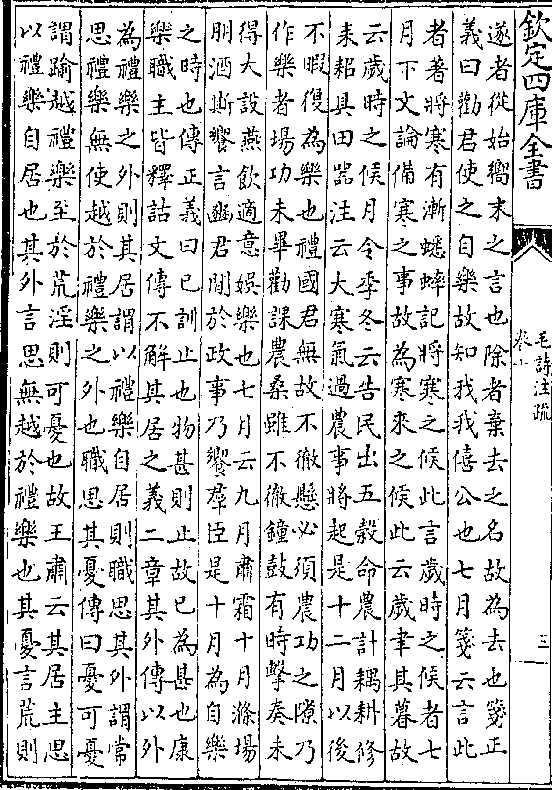 欽定四庫全書
毛詩注疏
卷十
三
遂者從始嚮末之言也除者棄去之名故為去也箋正
義曰勸君使之自樂故知我我僖公也七月箋云言此
者著將寒有漸蟋蟀記將寒之候此言歲時之候者七
月下文論備寒之事故為寒來之候此云歲聿其暮故
云歲時之候月令季冬云告民出五穀命農計耦耕修
耒耜具田器注云大寒氣過農事將起是十二月以後
不暇復為樂也禮國君無故不徹懸必須農功之隙乃
作樂者場功未畢勸課農桑雖不徹鐘鼓有時擊奏未
得大設燕飲適意娛樂也七月云九月肅霜十月滌場
朋酒斯饗言豳君閒於政事乃饗羣臣是十月為自樂
之時也傳正義曰已訓止也物甚則止故已為甚也康
樂職主皆釋詁文傳不解其居之義二章其外傳以外
為禮樂之外則其居謂以禮樂自居則職思其外謂常
思禮樂無使越於禮樂之外也職思其憂傳曰憂可憂
謂踰越禮樂至於荒淫則可憂也故王肅云其居主思
以禮樂自居也其外言思無越於禮樂也其憂言荒則